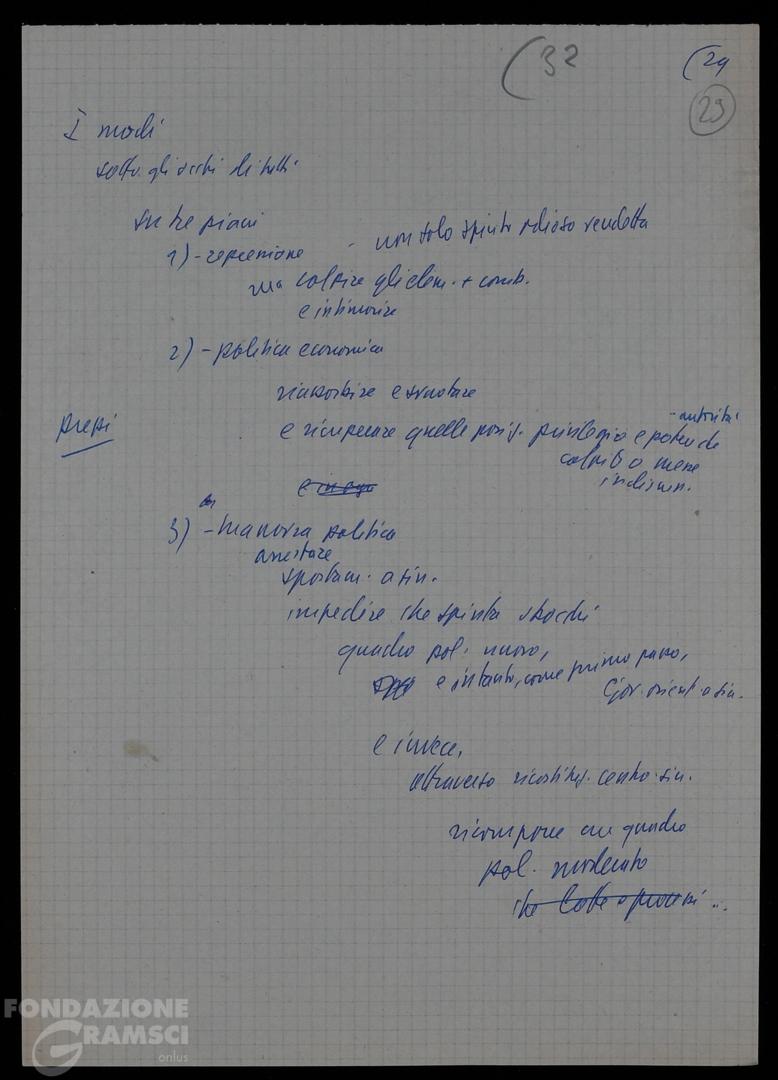 (32
(29
29
I modi
sotto gli occhi di tutti
su tre piani
1) - repressione - non solo spirito odioso vendetta
ma colpire gli elem. + comb.
e intimorire
2) - politica economica
riassorbire e svuotare
prezzi
- autorità
e recuperare quelle posiz. privilegio e potere che
colpito o messe
in discuss.
e in ogni
3) - manovra politica
arrestare
spostam. a sin.
impedire che spinta sbocchi
quadro pol. nuovo,
e intanto, come primo passo,
Gov. orient. a sin.
e invece,
attraverso ricostituz. centro-sin.
ricomporre un quadro
pol. moderato
che lotte e processi ...
FONDAZIONE
GRAMSCI
onlus